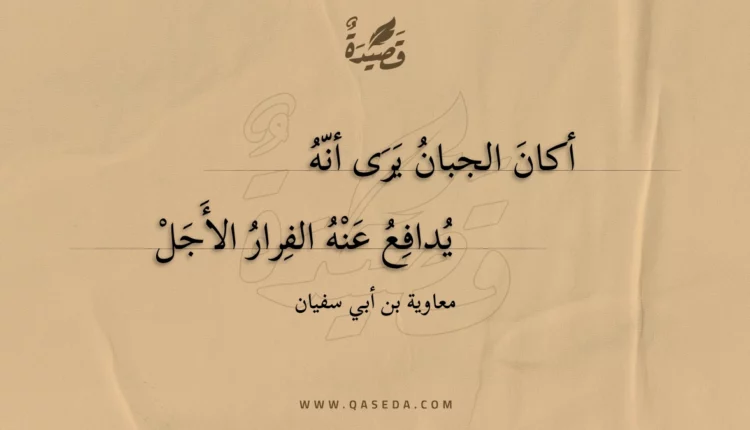 قَصِيدَةٌ
أكانَ الجبانُ يَرَى أنّهُ
يُدافِعُ عَنْهُ الفِرارُ الأَجَلْ
معاوية بن أبي سفيان
WWW.QASEDA.COM